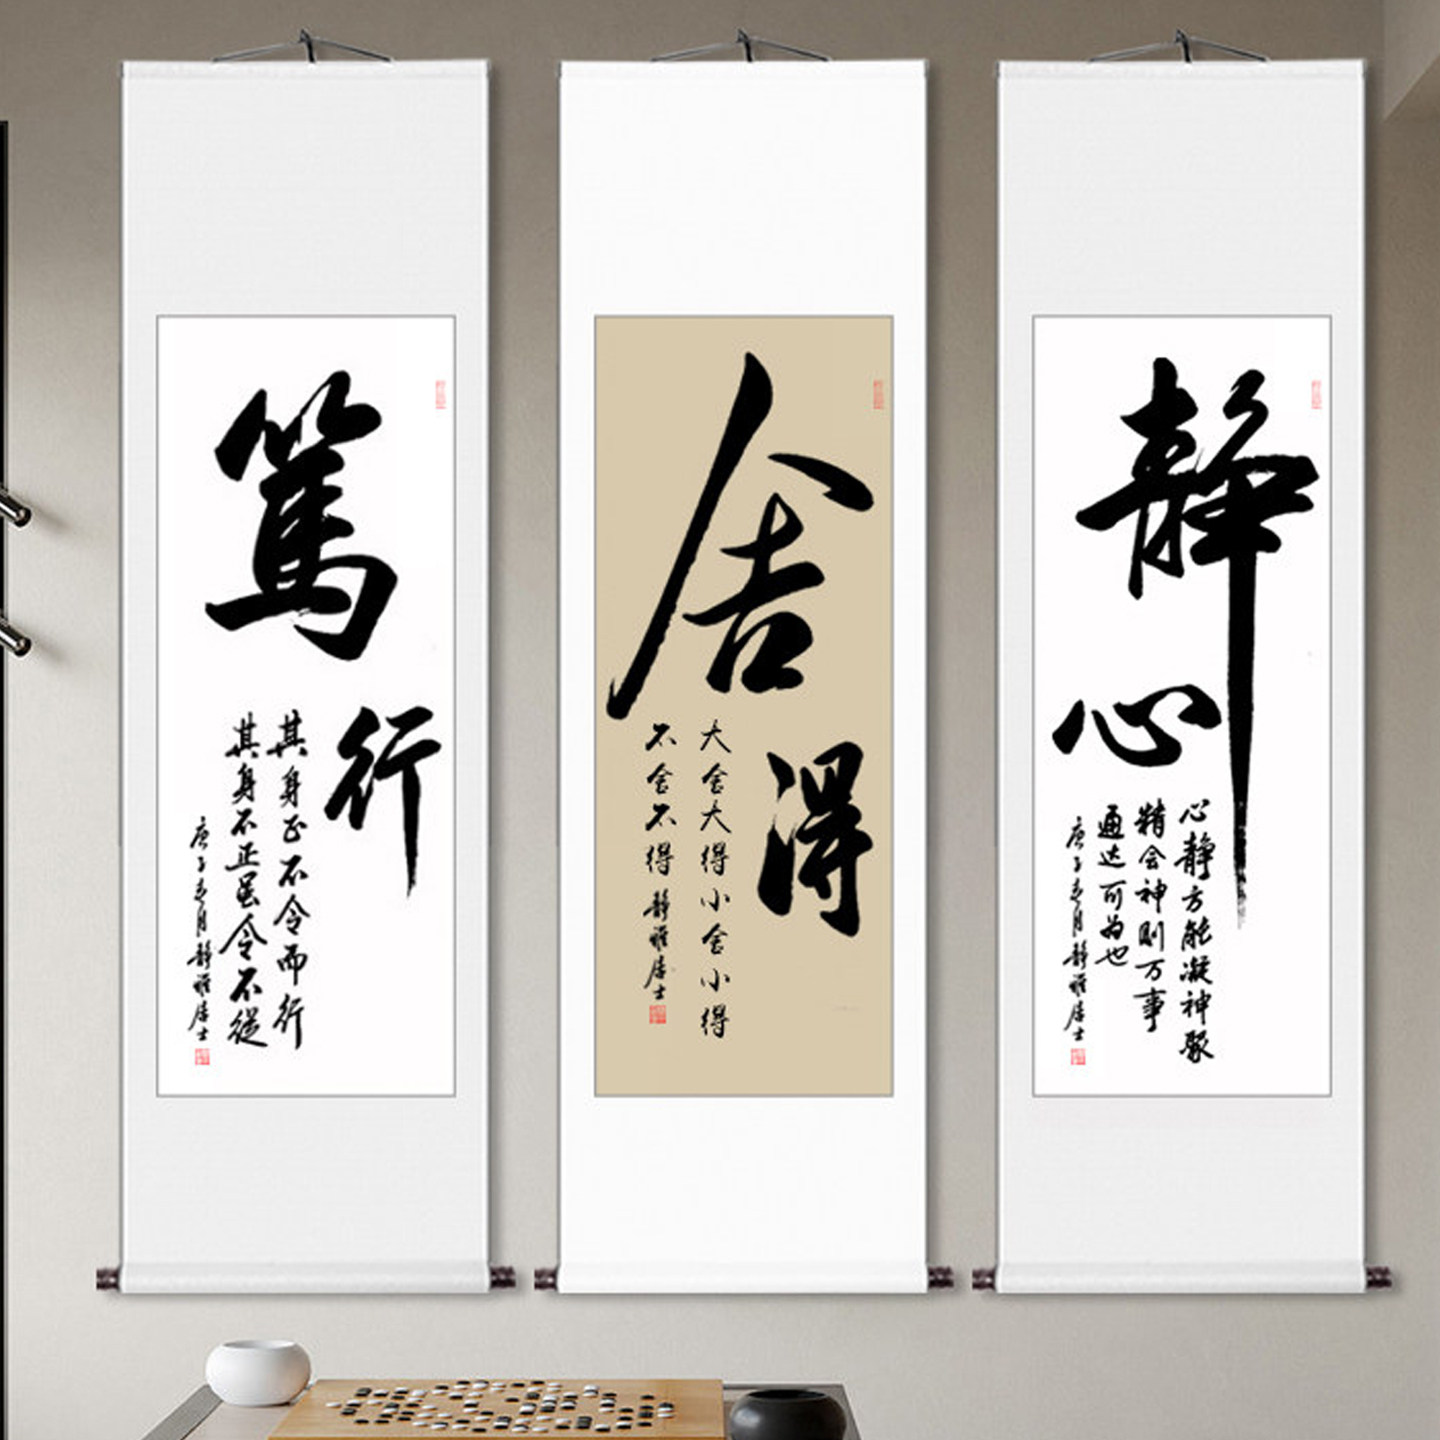 篤行
其身正不令而行
其身不正虽令不從
庚子春月静雅居士
舍得
大舍大得小舍小得
不舍不得静雅居士
静心
心静方能凝神聚
精会神则万事
通达可为也
庚子春月静雅居士